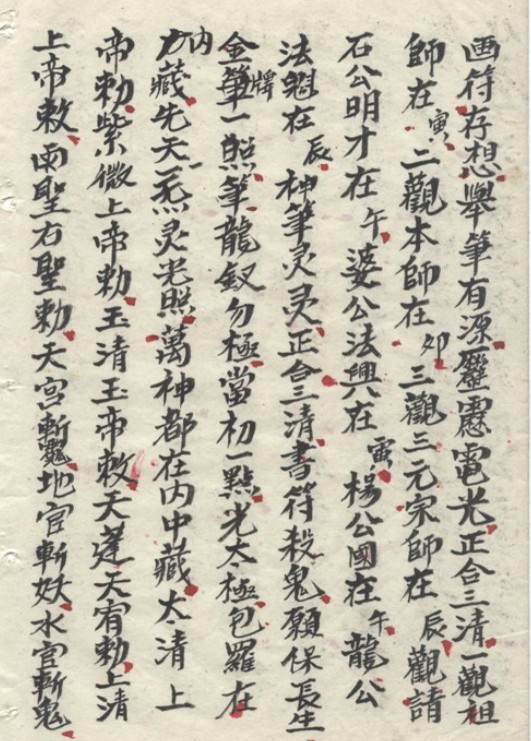 画符存想舉筆有源靂靂電光正合三清一觀祖
師在寅二觀本師在卯三觀三元宗師在辰觀請
石公明才在午婆公法興在寅楊公國在午龍公
法魁在辰神筆灵灵正合三清書符殺鬼願保長生
金筆牌一照筆龍釵勿極當初一點光太極包羅在
内方藏先天一炁灵光照萬神都在内中藏太清上
帝勅紫微上帝勅玉清玉帝敕天蓬天宥勅上清
上帝敕南聖右聖勅天官斬地官斬妖水官斬鬼